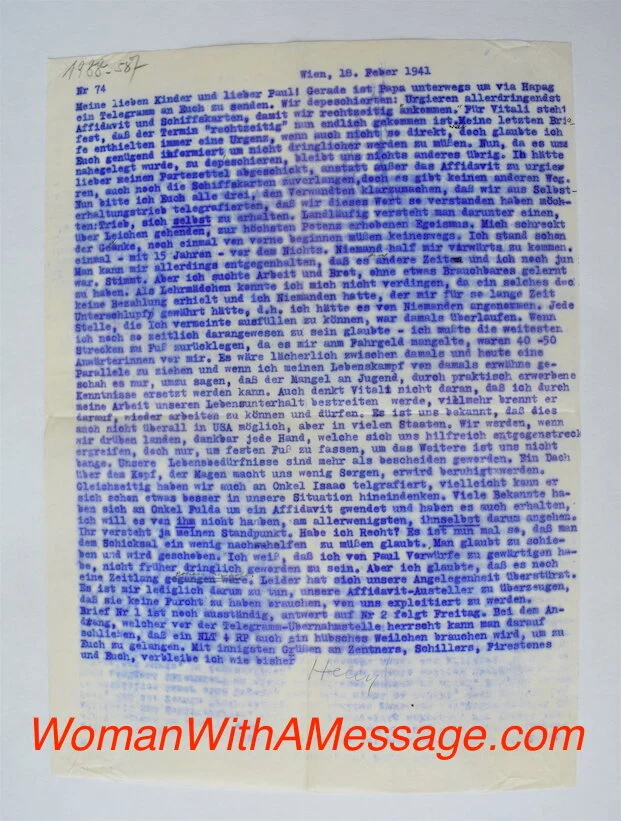 1988-587
Wien, 18. Feber 1941
Nr 74
Meine lieben Kinder und lieber Paul! Gerade ist Papa unterwegs um via Hapag
ein Telegramm an Euch zu senden. Wir depeschierten: Urgieren allerdringendst
Affidavit und Schiffskarten, damit wir rechtzeitig ankommen. Für Vitali steht
fest, daß der Termin "rechtzeitig" nun endlich gekommen ist. Meine letzten Brie
fe enthielten immer eine Urgenz, wenn auch nicht so direkt, doch glaubte ich
Euch genügend informiert, um nicht dringlicher werden zu müßen. Nun, da es uns
nahegelegt wurde, zu depeschieren, bleibt uns nichts anderes übrig. Ih hätte
lieber meinen Portesettel abgeschickt, anstatt außer das Affidavit zu urgie=
ren, auch noch die Schiffskarten zuverlangen, doch es gibt keinen anderen Weg.
Nun bitte ich Euch alle drei, den Verwandten klarzumachen, daß wir aus Selbst-
erhaltungstrieb telegrafierten, daß wir dieses Wort so verstanden haben möch-
ten: Trieb, sich selbst zu erhalten. Landläufig versteht man darunter einen,
über Leichen gehenden, zur höchsten Potenz erhobenen Egoismus. Mich schreckt
der Gedanke, noch einmal von vorne beginnen müßen keineswegs. Ich stand schon
einmal - mit 15 Jahren - vor dem Nichts. Niemand half mir vorwärts zu kommen.
Man kann mir allerdings entgegenhalten, daß es andere Zeiten und ich noch jun
war. Stimmt. Aber ich suchte Arbeit und Brot, ohne etwas Brauchbares gelernt
zu haben. Als Lehrmädchen konnte ich mich nicht verdingen, da ein solches dac
keine Bezahlung erhielt und ich Niemanden hatte, der mir für so lange Zeit
Unterschlupf gewährt hätte, d.h. ich hätte es von Niemanden angenommen. Jede
Stelle, die Ich vermeinte ausfüllen zu können, war damals überlaufen. Wenn
ich noch so zeitlich darangewesen zu sein glaubte - ich mußte die weitesten
Strecken zu Fuß zurücklegen, da es mir anm Fahrgeld mangelte, waren 40 -50
Anwärterinnen vor mir. Es wäre lächerlich zwischen damals und heute eine
Paralelle zu ziehen und wenn ich meinen Lebenskampf von damals erwähne ge-
schah es nur, umzu sagen, daß der Mangel an Jugend, durch praktisch erworbene
Kenntnisse ersetzt werden kann. Auch denkt Vitali nicht daran, daß ich durch
meine Arbeit unseren Lebensunterhalt bestreiten werde, vielmehr brennt er
darauf, wieder arbeiten zu können und dürfen. Es ist uns bekannt, daß dies
noch nicht überall in USA möglich, aber in vielen Staaten. Wir werden, wenn
wir drüben landen, dankbar jede Hand, welche sich uns hilfreich entgegenstreck
ergreifen, doch nur, um festen Fuß zu fassen, um das Weitere ist uns nicht
bange. Unsere Lebensbedürfnisse sind mehr als bescheiden geworden. Ein Dach
über dem Kopf, der Magen macht uns wenig Sorgen, erwird beruhigtwerden.
Gleichzeitig haben wir auch an Onkel Isaac telgrafiert, vielleicht kann er
sich schon etwas besser in unsere Situation hineindenken. Viele Bekannte ha-
ben sich an Onkel Fulda um ein Affidavit gwendet und haben es auch erhalten,
ich will es von ihm nicht haben, am allerwenigsten, ihnselbst darum angehen.
Ihr versteht ja meinen Standpunkt. Habe ich Recht? Es ist nun mal so, daß man
dem Schicksal ein wenig nachzuhelfen zu müßen glaubt. Man glaubt zu schie-
ben und wird geschoben. Ich weiß, daß ich von Paul Vorwürfe zu gewärtigen ha-
be, nicht früher dringlich geworden zu sein. Aber ich glaubte, daß es noch
eine Zeitlang gegangen wäre. Leider hat sich unsere Angelegenheit überstürzt.
Es ist mir lediglich darum zu tun, unsere Affidavit-Austeller zu überzeugen,
daß sie keine Furcht zu haben brauchen, von uns exploitiert zu werden.
Brief Nr 1 ist noch ausständig, antwort auf Nr 2 folgt Freitag. Bei dem An-
drang, welcher vor der Telegramm-Übernahmstelle herrscht kann man darauf
schließen, daß ein NLT + RP auch ein hübsches Weilchen brauchen wird, um zu
Euch zu gelangen. Mit innigsten Grüßen an Zentners, Schillers, Firestones
und Euch, verbleibe ich wie bisher
Helly
WomanWithAMessage.com